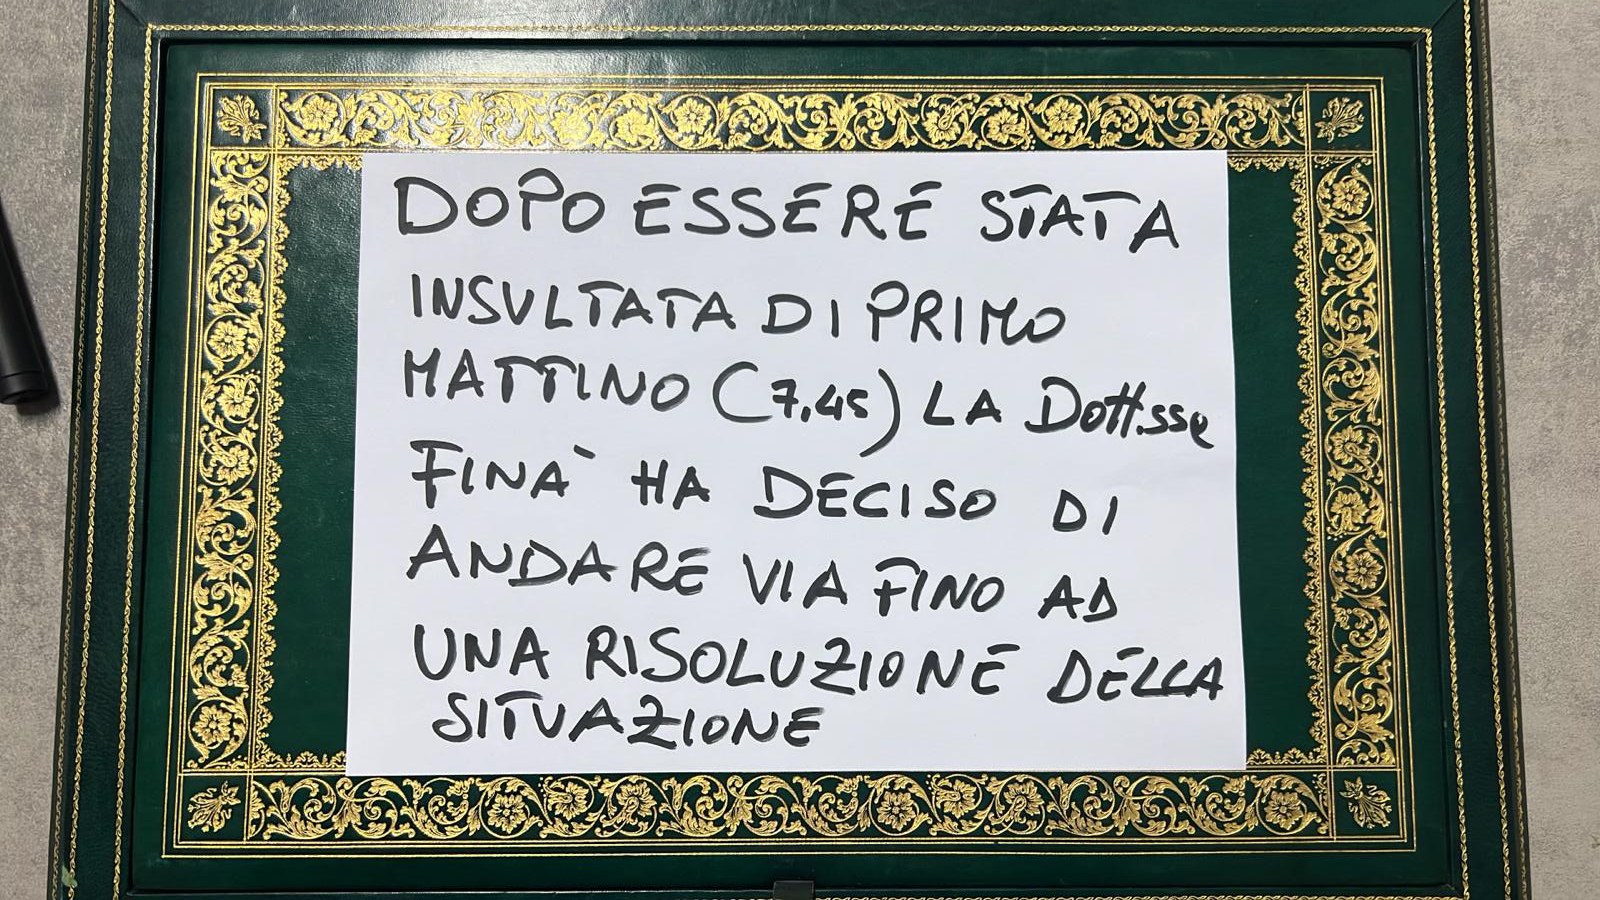 DOPO ESSERE STATA
INSULTATA DI PRIMO
MATTINO (7,45) LA Dott.ssa
FINÀ HA DECISO DI
ANDARE VIA FINO AD
UNA RISOLUZIONE DELLA
SITUAZIONE